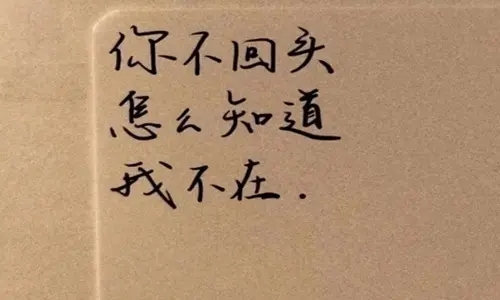 你不回头
怎么知道
我不在.